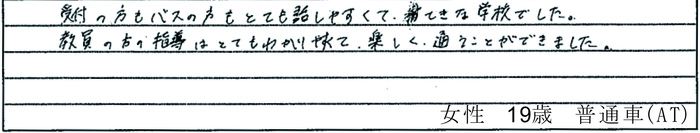 受付の方もバスの方もとても話しやすくて、すてきな学校でした。
教員の方の指導はとてもわかりやすくて、楽しく通うことができました。
女性 19歳 普通車(AT)